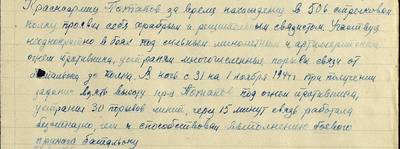 Красноармеец Потапов за время нахождения в 506 стрелковом
полку проявил себя храбрым и решительным связистом. Участвуя
неоднократно в боях под сильным минометным и артиллерийским
огнем противника, устранял многочисленные порывы связи от
батальона до полка. В ночь с 31 на 1 ноября 1944 г при получении
задания взять высоту при Потапов под огнем противника,
устранил 30 порывов линий, через 15 минут связь работала
чем и способствовал выполнению боевого
приказа батальону